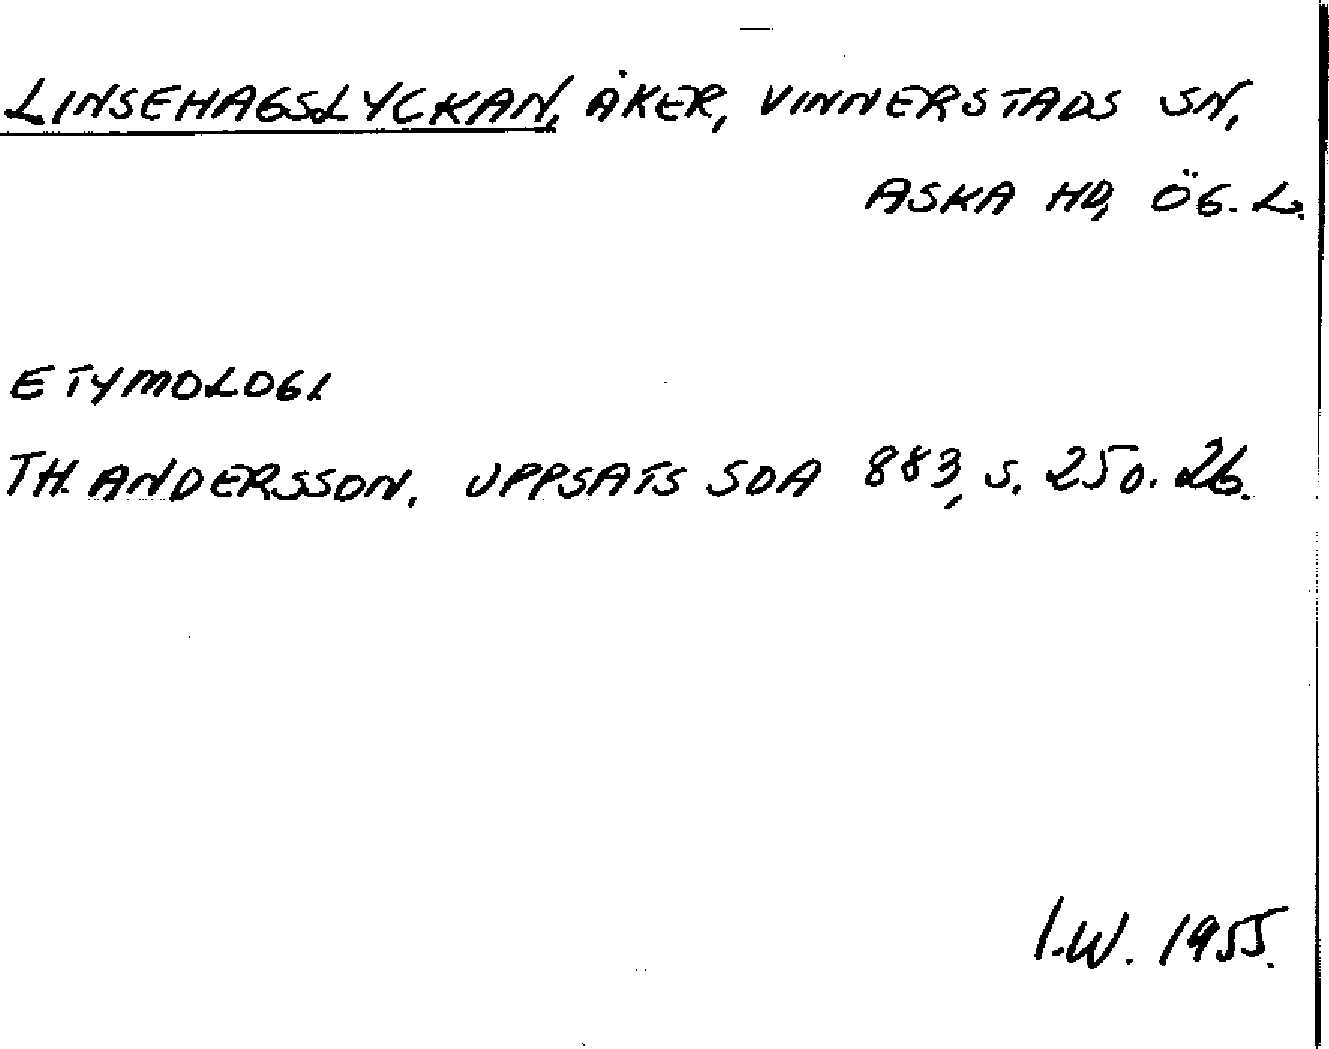 LINSEHAGSLYCKAN, ÅKER, VINNERSTADS SN,
ASKA HD, ÖG. L.
ETYMOLOGI
TH. ANDERSSON. UPPSATS SOA 883, S. 250. 26.
I.W. 1955.